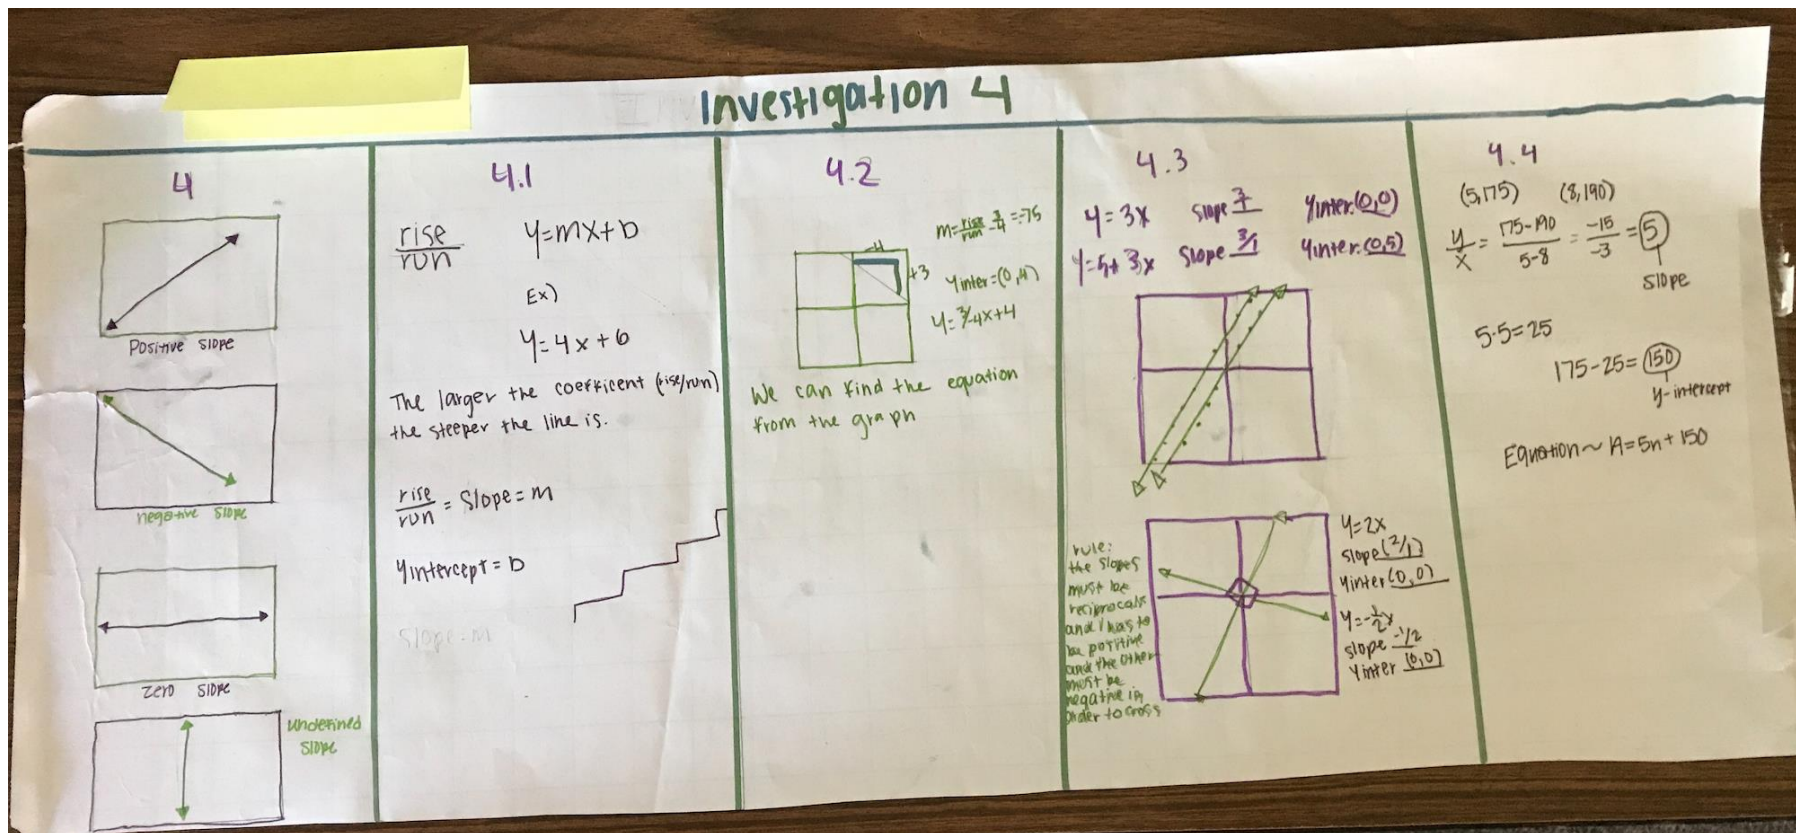 Investigation 4
4
Positive slope
negative slope
Zero slope
Undefined
slope
4.1
rise
run
y=mx+b
Ex)
y=4x+6
The larger the coefficent (rise/run)
the steeper the line is.
rise
run
= slope = m
y intercept = b
slope = m
4.2
m= rise/run 3/-4 = -.75
-4
+3
y inter = (0,4)
y = 3/-4x+4
We can find the equation
from the graph
4.3
y = 3x slope 3/1 y inter. (0,0)
y = 5+3x slope 3/1 y inter. (0,5)
rule:
the slopes
must be
reciprocals
and 1 has to
be positive
and the other
must be
negative in
order to cross
y=2x
slope (2/1)
y inter (0,0)
y=-1/2x
slope -1/2
y inter (0,0)
4.4
(5,175) (8,190)
y/x = 175-190/5-8 = -15/-3 = 5
slope
5·5=25
175-25=150
y-intercept
Equation ~ A=5n+150